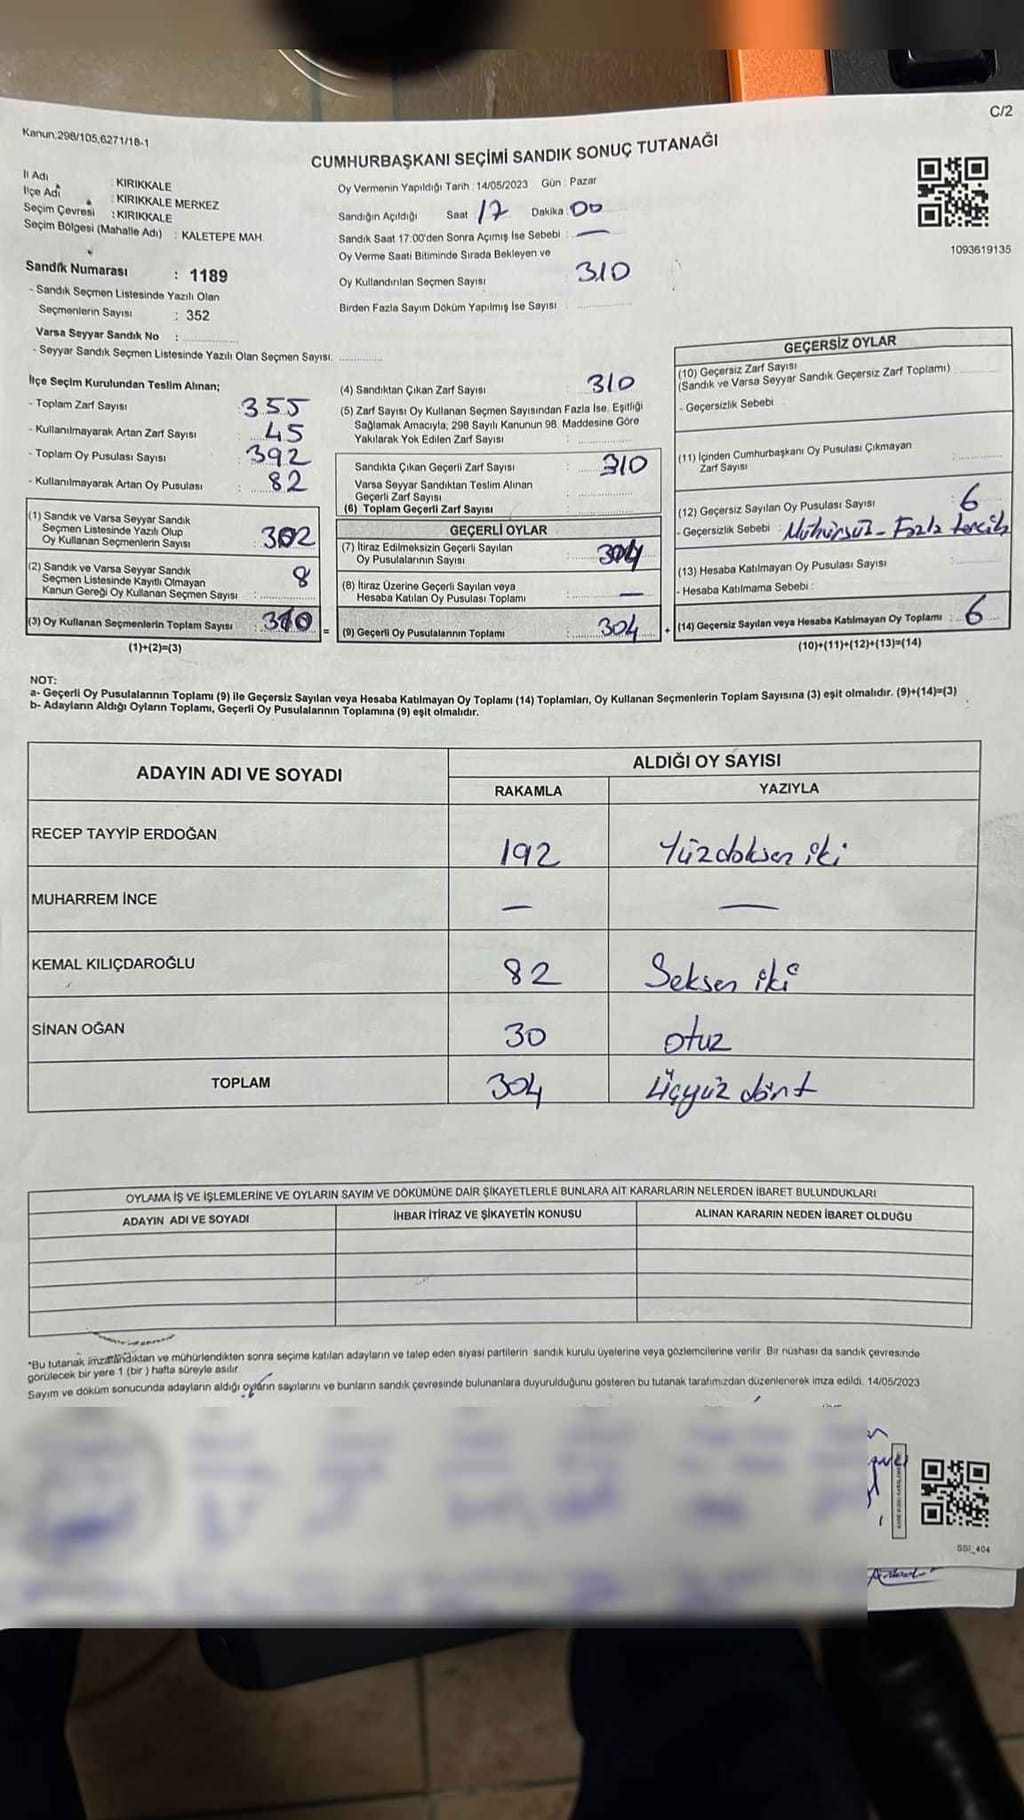 C/2
Kanun;298/105,6271/18-1
CUMHURBAŞKANI SEÇİMİ SANDIK SONUÇ TUTANAĞI
İl Adı : KIRIKKALE
İlçe Adı : KIRIKKALE MERKEZ
Seçim Çevresi : KIRIKKALE
Seçim Bölgesi (Mahalle Adı) : KALETEPE MAH.
Oy Vermenin Yapıldığı Tarih : 14/05/2023 Gün : Pazar
Sandığın Açıldığı Saat 17 Dakika : 00
Sandık Saat 17:00'den Sonra Açımış İse Sebebi : —
Oy Verme Saati Bitiminde Sırada Bekleyen ve
Oy Kullandırılan Seçmen Sayısı : 310
Birden Fazla Sayım Döküm Yapılmış İse Sayısı :
1093619135
Sandık Numarası : 1189
- Sandık Seçmen Listesinde Yazılı Olan
Seçmenlerin Sayısı : 352
Varsa Seyyar Sandık No :
- Seyyar Sandık Seçmen Listesinde Yazılı Olan Seçmen Sayısı:
İlçe Seçim Kurulundan Teslim Alınan;
- Toplam Zarf Sayısı : 355
- Kullanılmayarak Artan Zarf Sayısı : 45
- Toplam Oy Pusulası Sayısı : 392
- Kullanılmayarak Artan Oy Pusulası : 82
(1) Sandık ve Varsa Seyyar Sandık
Seçmen Listesinde Yazılı Olup
Oy Kullanan Seçmenlerin Sayısı : 302
(2) Sandık ve Varsa Seyyar Sandık
Seçmen Listesinde Kayıtlı Olmayan
Kanun Gereği Oy Kullanan Seçmen Sayısı : 8
(3) Oy Kullanan Seçmenlerin Toplam Sayısı : 310 =
(1)+(2)=(3)
(4) Sandıktan Çıkan Zarf Sayısı : 310
(5) Zarf Sayısı Oy Kullanan Seçmen Sayısından Fazla İse, Eşitliği
Sağlamak Amacıyla; 298 Sayılı Kanunun 98. Maddesine Göre
Yakılarak Yok Edilen Zarf Sayısı :
Sandıkta Çıkan Geçerli Zarf Sayısı : 310
Varsa Seyyar Sandıktan Teslim Alınan
Geçerli Zarf Sayısı :
(6) Toplam Geçerli Zarf Sayısı :
GEÇERLİ OYLAR
(7) İtiraz Edilmeksizin Geçerli Sayılan
Oy Pusulalarının Sayısı : 304
(8) İtiraz Üzerine Geçerli Sayılan veya
Hesaba Katılan Oy Pusulası Toplamı : —
(9) Geçerli Oy Pusulalarının Toplamı : 304 +
GEÇERSİZ OYLAR
(10) Geçersiz Zarf Sayısı
(Sandık ve Varsa Seyyar Sandık Geçersiz Zarf Toplamı) :
- Geçersizlik Sebebi :
(11) İçinden Cumhurbaşkanı Oy Pusulası Çıkmayan
Zarf Sayısı :
(12) Geçersiz Sayılan Oy Pusulası Sayısı : 6
- Geçersizlik Sebebi : Mühürsüz - Fazla tercih
(13) Hesaba Katılmayan Oy Pusulası Sayısı :
- Hesaba Katılmama Sebebi :
(14) Geçersiz Sayılan veya Hesaba Katılmayan Oy Toplamı : 6
(10)+(11)+(12)+(13)=(14)
NOT:
a- Geçerli Oy Pusulalarının Toplamı (9) ile Geçersiz Sayılan veya Hesaba Katılmayan Oy Toplamı (14) Toplamları, Oy Kullanan Seçmenlerin Toplam Sayısına (3) eşit olmalıdır. (9)+(14)=(3)
b- Adayların Aldığı Oyların Toplamı, Geçerli Oy Pusulalarının Toplamına (9) eşit olmalıdır.
ADAYIN ADI VE SOYADI ALDIĞI OY SAYISI
RAKAMLA YAZIYLA
RECEP TAYYİP ERDOĞAN 192 Yüzdoksan iki
MUHARREM İNCE — —
KEMAL KILIÇDAROĞLU 82 Seksen iki
SİNAN OĞAN 30 otuz
TOPLAM 304 üçyüz dört
OYLAMA İŞ VE İŞLEMLERİNE VE OYLARIN SAYIM VE DÖKÜMÜNE DAİR ŞİKAYETLERLE BUNLARA AİT KARARLARIN NELERDEN İBARET BULUNDUKLARI
ADAYIN ADI VE SOYADI İHBAR İTİRAZ VE ŞİKAYETİN KONUSU ALINAN KARARIN NEDEN İBARET OLDUĞU
*Bu tutanak imzalandıktan ve mühürlendikten sonra seçime katılan adayların ve talep eden siyasi partilerin sandık kurulu üyelerine veya gözlemcilerine verilir. Bir nüshası da sandık çevresinde
görülecek bir yere 1 (bir) hafta süreyle asılır.
Sayım ve döküm sonucunda adayların aldığı oyların sayılarını ve bunların sandık çevresinde bulunanlara duyurulduğunu gösteren bu tutanak tarafımızdan düzenlenerek imza edildi. 14/05/2023
SSI_404